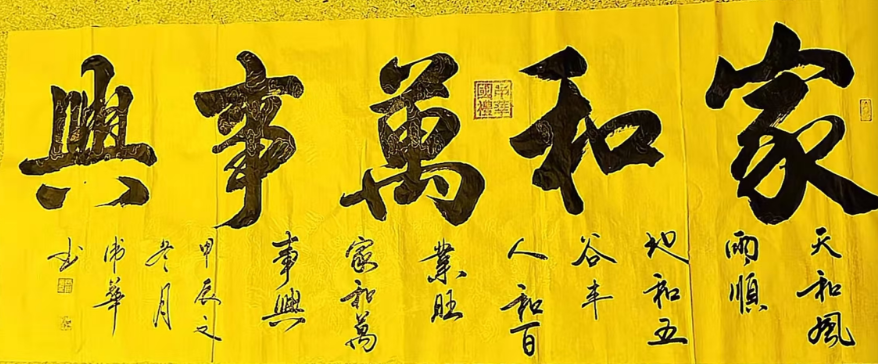 家和萬事興
天和風
雨順
地和五
谷丰
人和百
業旺
家和萬
事興
甲辰之
冬月